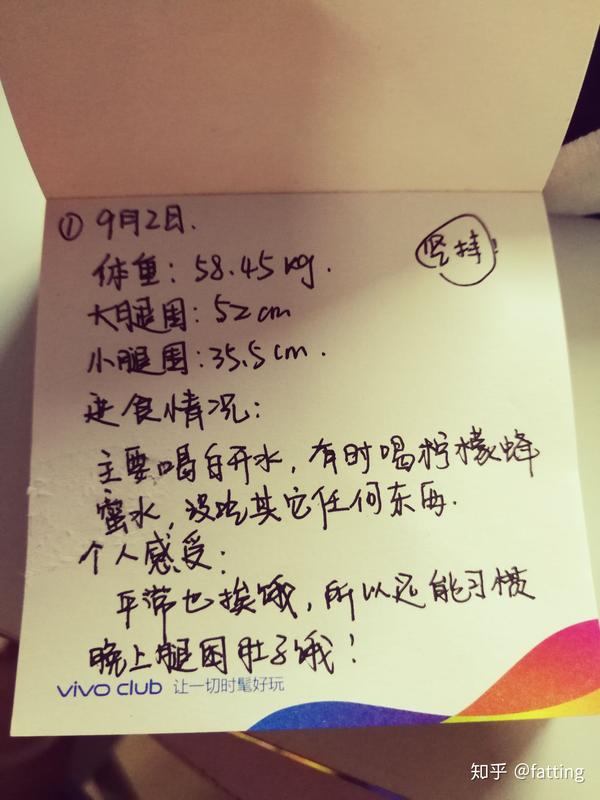 ① 9月2日.
坚持!
体重：58.45kg.
大腿围：52cm
小腿围：35.5cm.
进食情况：
主要喝白开水，有时喝柠檬蜂
蜜水，没吃其它任何东西.
个人感受：
平常也挨饿，所以还能习惯
晚上腿困肚子饿！
vivo club 让一切时髦好玩
知乎 @fatting